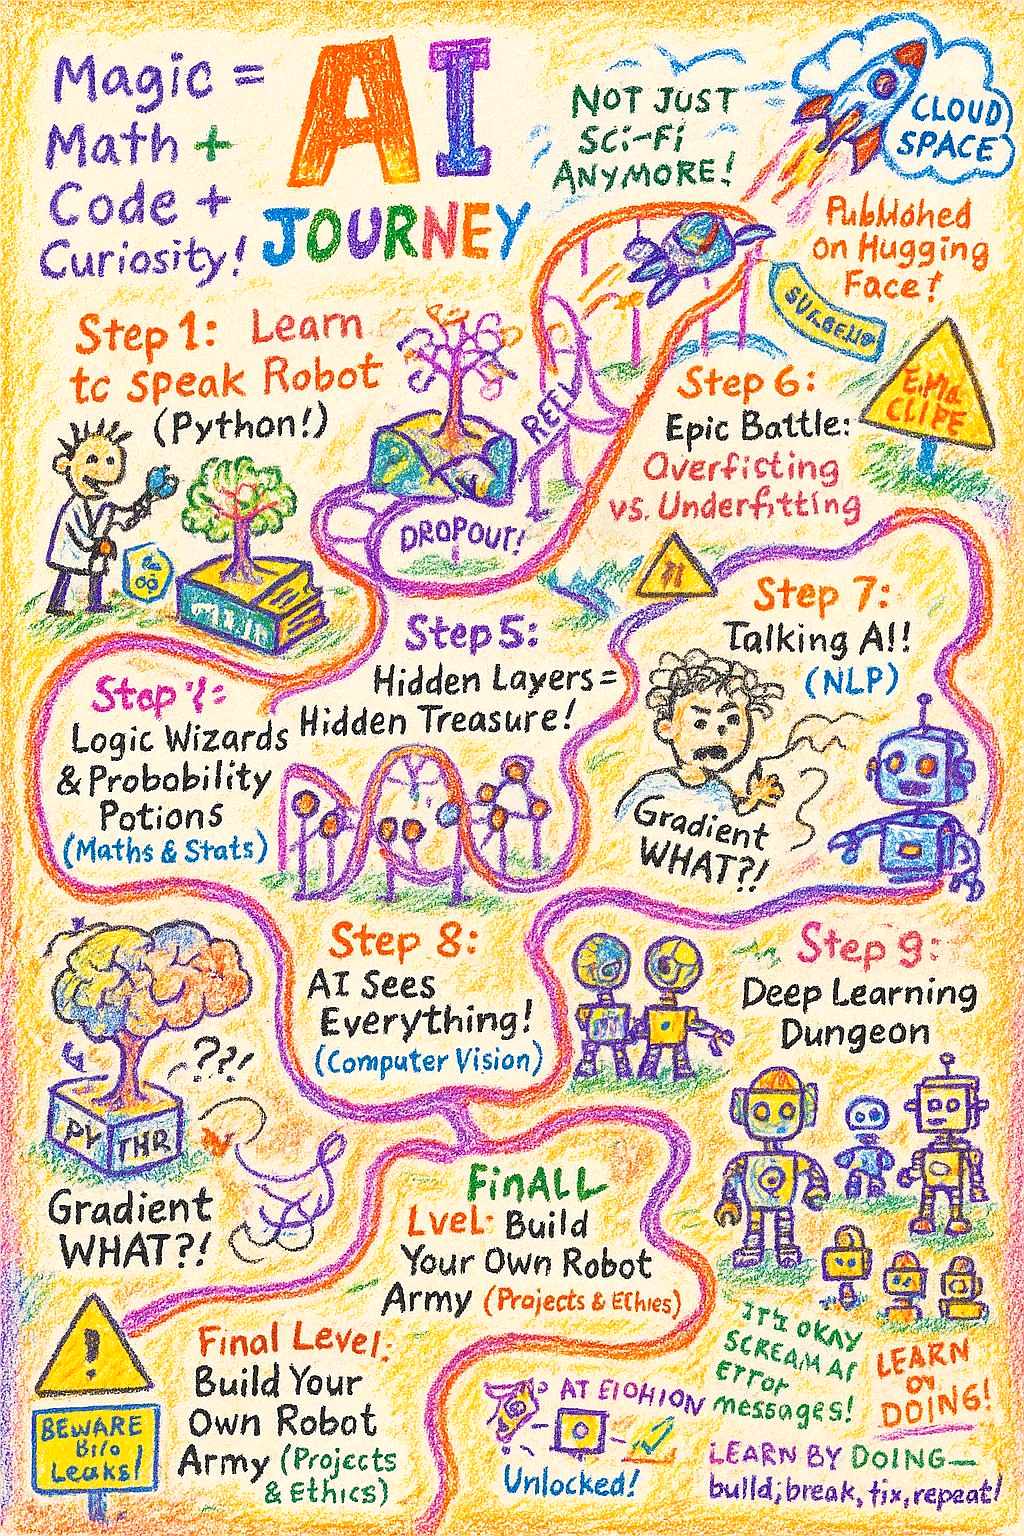 Magic =
Math +
Code +
Curiosity!
AI
JOURNEY
NOT JUST
Sci-Fi
ANYMORE!
CLOUD
SPACE
on Hugging
Face!
Step 1: Learn
tc speak Robot
(Python!)
DROPOUT!
Step 6:
Epic Battle:
Overficting
vs. Underfitting
Step 7:
Talking A!!
(NLP)
Step 5:
Hidden Layers =
Hidden Treasure!
Logic Wizards
& Probobility
Potions
(Maths & Stats)
Gradient
WHAT?!
Step 8:
AI Sees
Everything!
(Computer Vision)
Step 9:
Deep Learning
Dungeon
??!
PV THR
Gradient
WHAT?!
FinALL
LveL: Build
Your Own Robot
Army (Projects & Ethies)
!
BEWARE
Leaks!
Final Level:
Build Your
Own Robot
Army (Projects
& Ethics)
AT EIOHION
Unlocked!
IT's OKAY
SCREAM AI
ErroR
messages!
LEARN
DOING!
LEARN BY DOING—
build, break, fix, repeat!